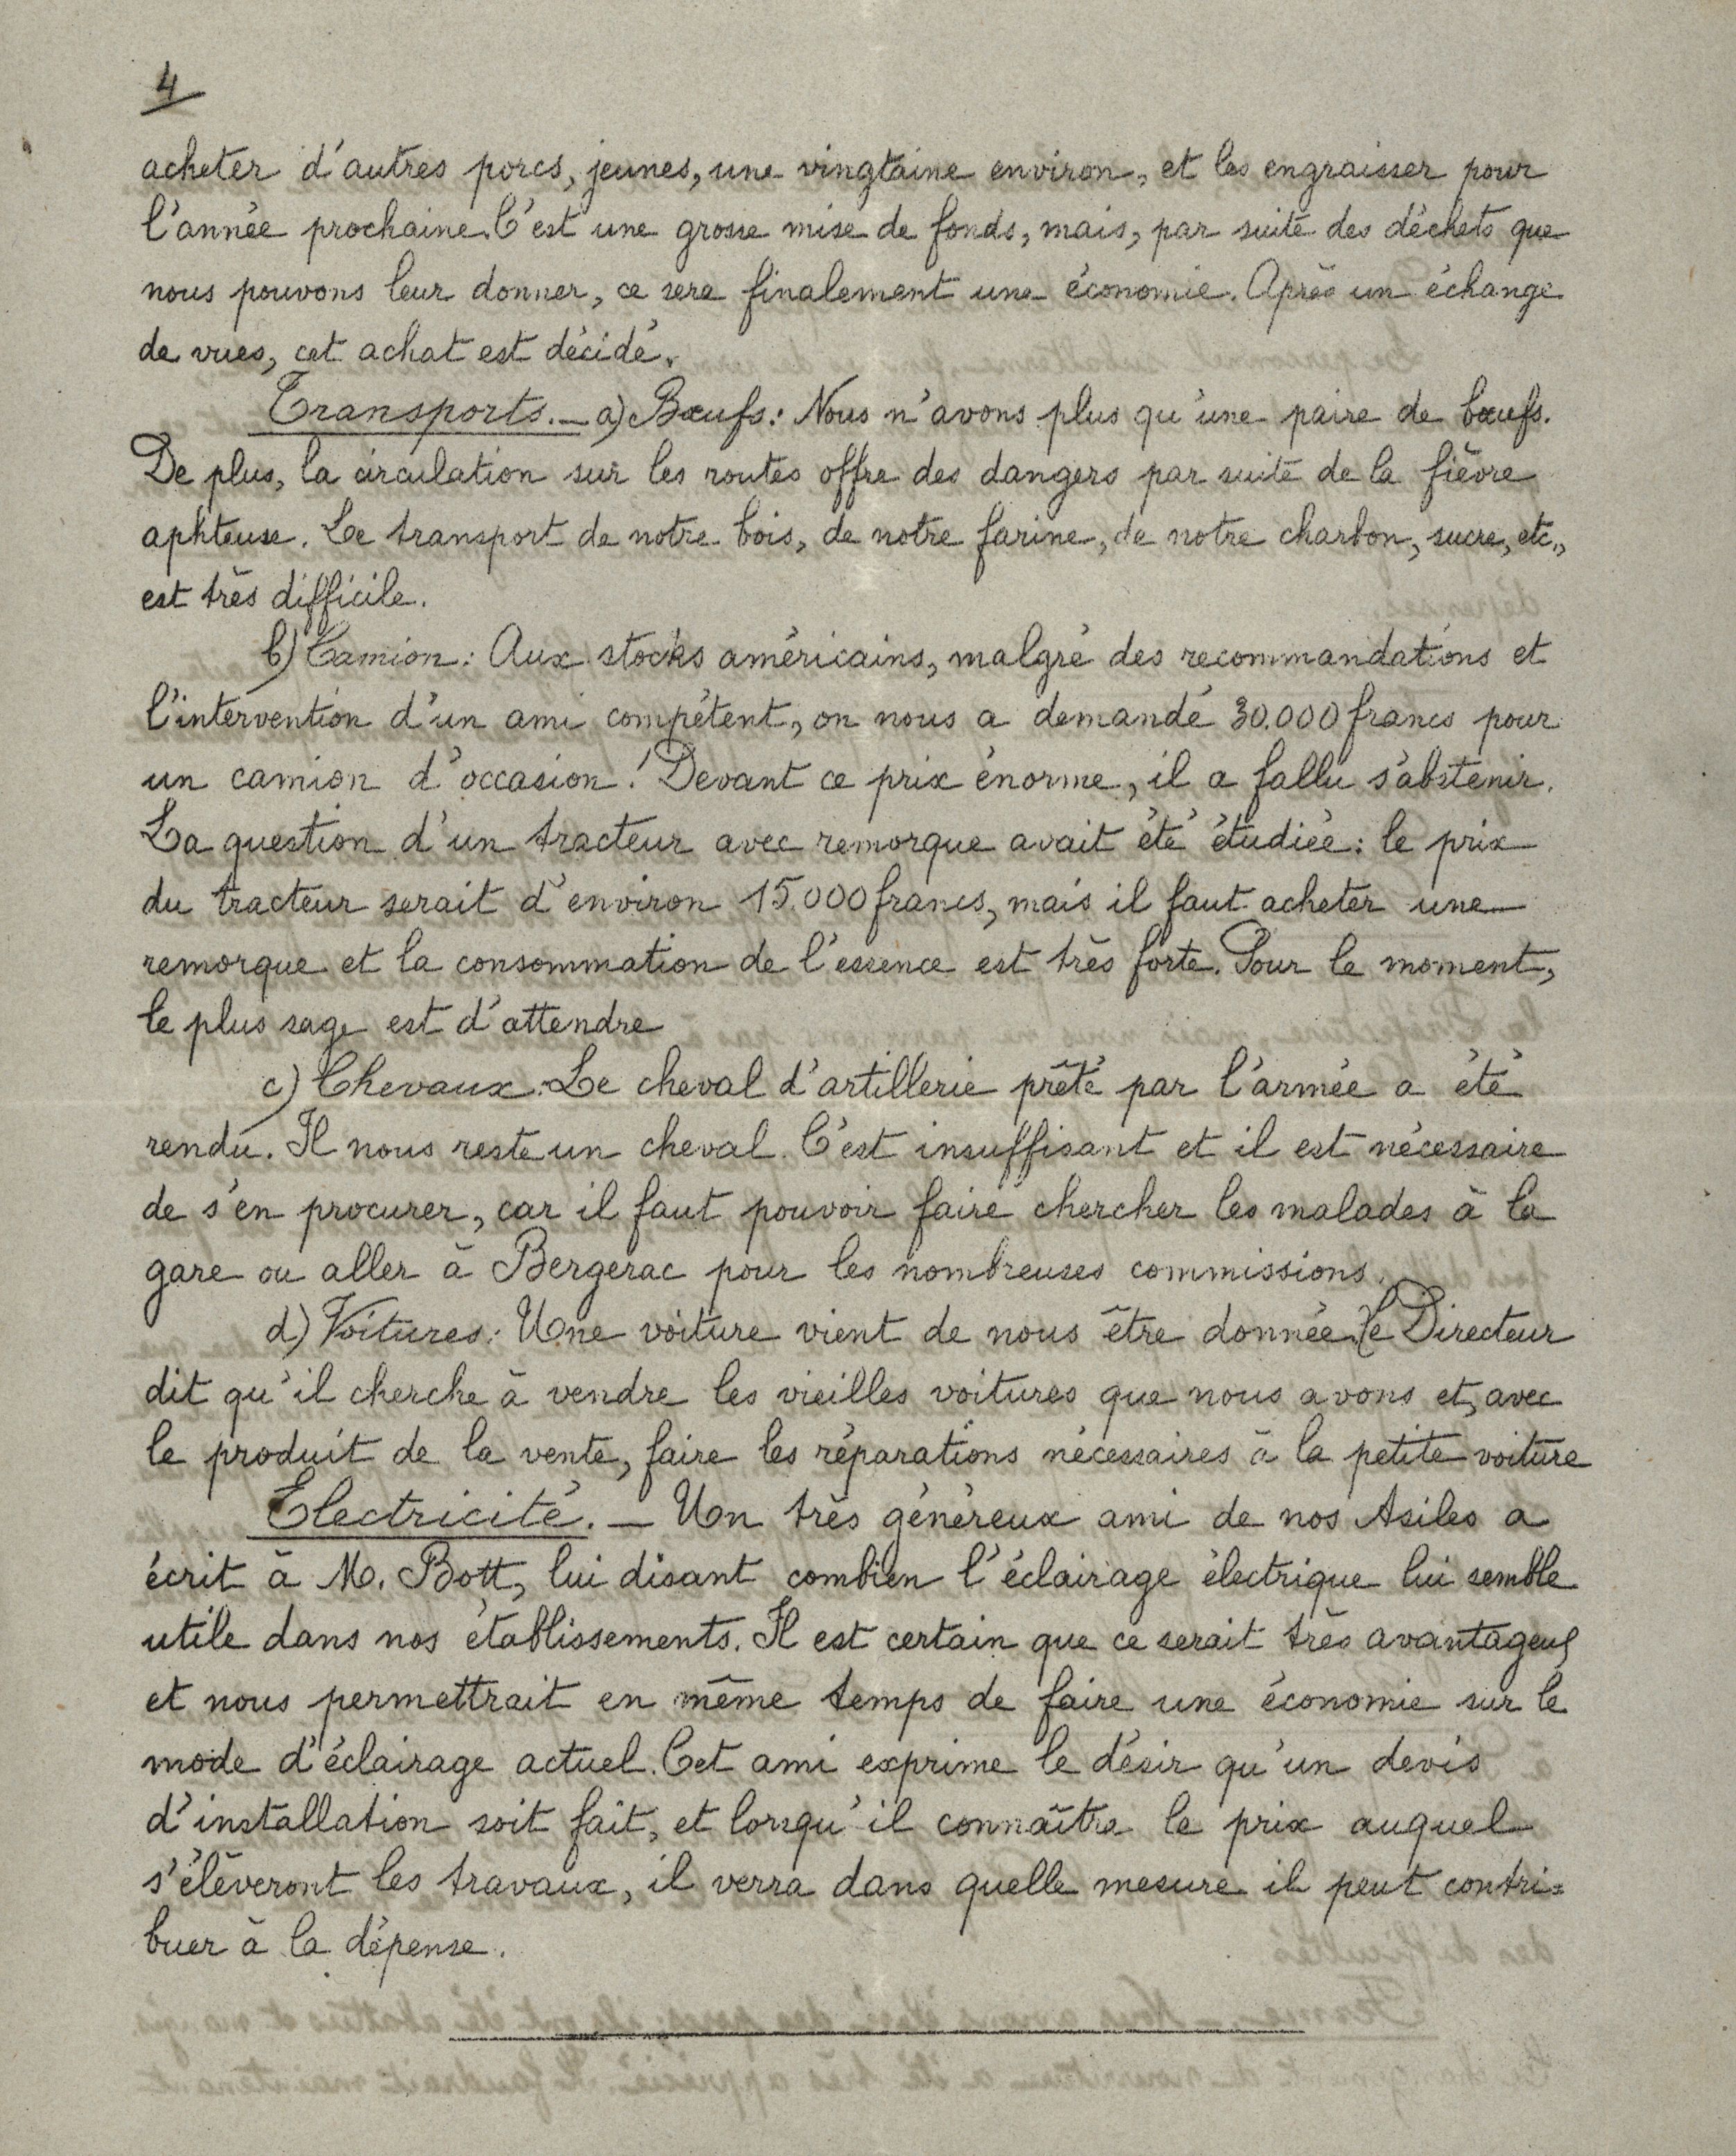 4
acheter d'autres porcs, jeunes, une vingtaine environ, et les engraisser pour
l'année prochaine. C'est une grosse mise de fonds, mais, par suite des déchets que
nous pouvons leur donner, ce sera finalement une économie. Après un échange
de vues, cet achat est décidé.
Transports. — a) Bœufs: Nous n'avons plus qu'une paire de bœufs.
De plus, la circulation sur les routes offre des dangers par suite de la fièvre
aphteuse. Le transport de notre bois, de notre farine, de notre charbon, sucre, etc.,
est très difficile.
b) Camion: Aux stocks américains, malgré des recommandations et
l'intervention d'un ami compétent, on nous a demandé 30.000 francs pour
un camion d'occasion! Devant ce prix énorme, il a fallu s'abstenir.
La question d'un tracteur avec remorque avait été étudiée: le prix
du tracteur serait d'environ 15.000 francs, mais il faut acheter une
remorque et la consommation de l'essence est très forte. Pour le moment,
le plus sage est d'attendre
c) Chevaux: Le cheval d'artillerie prêté par l'armée a été
rendu. Il nous reste un cheval. C'est insuffisant et il est nécessaire
de s'en procurer, car il faut pouvoir faire chercher les malades à la
gare ou aller à Bergerac pour les nombreuses commissions.
d) Voitures: Une voiture vient de nous être donnée, le Directeur
dit qu'il cherche à vendre les vieilles voitures que nous avons et, avec
le produit de la vente, faire les réparations nécessaires à la petite voiture
Electricité. — Un très généreux ami de nos Asiles a
écrit à M. Bott, lui disant combien l'éclairage électrique lui semble
utile dans nos établissements. Il est certain que ce serait très avantageux
et nous permettrait en même temps de faire une économie sur le
mode d'éclairage actuel. Cet ami exprime le désir qu'un devis
d'installation soit fait, et lorsqu'il connaîtra le prix auquel
s'élèveront les travaux, il verra dans quelle mesure il peut contri=
buer à la dépense.